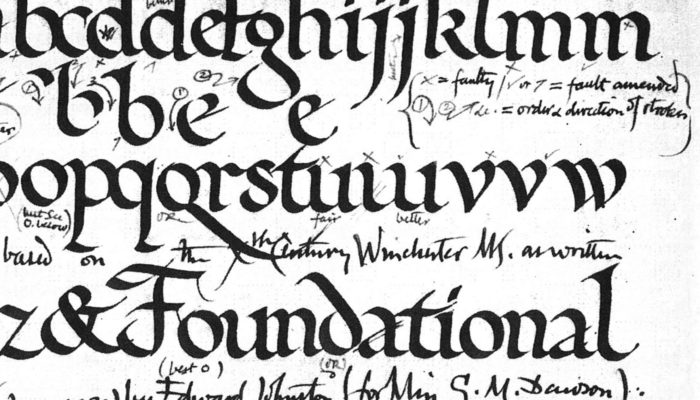 abcddefghijjklmm
better
x = faulty / ✓ or 7 = fault amended
bbe e
① ②7 &c. = order & direction of strokes
opopqqrsstuuuvvvw
(but see O. below) OR fair better
based on the Xth Century Winchester MS. as written
z & Foundational
(best o) (OR)
Edward Johnston (for Miss G. M. Dawson):